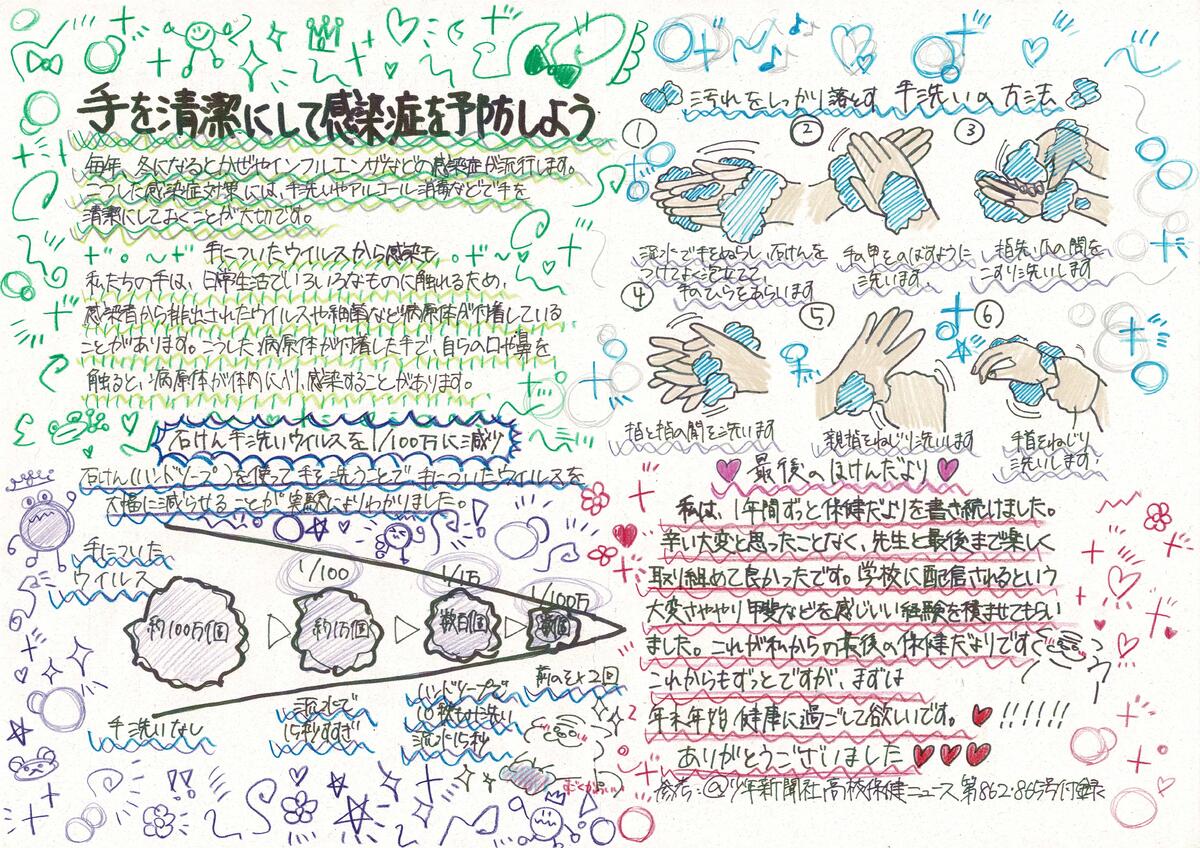 手を清潔にして感染症を予防しよう
毎年、冬になるとかぜやインフルエンザなどの感染症が流行します。
こうした感染症対策には、手洗いやアルコール消毒などで手を
清潔にしておくことが大切です。
手についたウイルスから感染も
私たちの手は、日常生活でいろいろなものに触れるため、
感染者から排出されたウイルスや細菌など病原体が付着している
ことがあります。こうした病原体が付着した手で、自らの口や鼻を
触ると、病原体が体内に入り、感染することがあります。
石けん手洗いウイルスを1/100万に減少
石けん(ハンドソープ)を使って手を洗うことで手についたウイルスを
大幅に減らせることが実験によりわかりました。
手についた
ウイルス
約100万個
手洗いなし
1/100
約1万個
流水で
15秒すすぎ
1/1万
数百個
ハンドソープで
10秒もみ洗い
流水15秒
1/100万
数個
前のを×2回
汚れをしっかり落とす 手洗いの方法
①
流水で手をぬらし、石けんを
つけてよく泡立てて、
手のひらをあらいます
②
手の甲をのばすように
洗います。
③
指先、爪の間を
こすり洗いします
④
指と指の間を洗います
⑤
親指をねじり洗いします
⑥
手首をねじり
洗いします。
最後のほけんだより
私は、1年間ずっと保健だよりを書き続けました。
辛い大変と思ったことなく、先生と最後まで楽しく
取り組めて良かったです。学校に配信されるという
大変さややり甲斐などを感じいい経験を積ませてもらい
ました。これが私からの最後の保健だよりです
これからもずっとですが、まずは
年末年始健康に過ごして欲しいです。!!!!!!
ありがとうございました
参考:@少年新聞社高校保健ニュース第862・865号付録